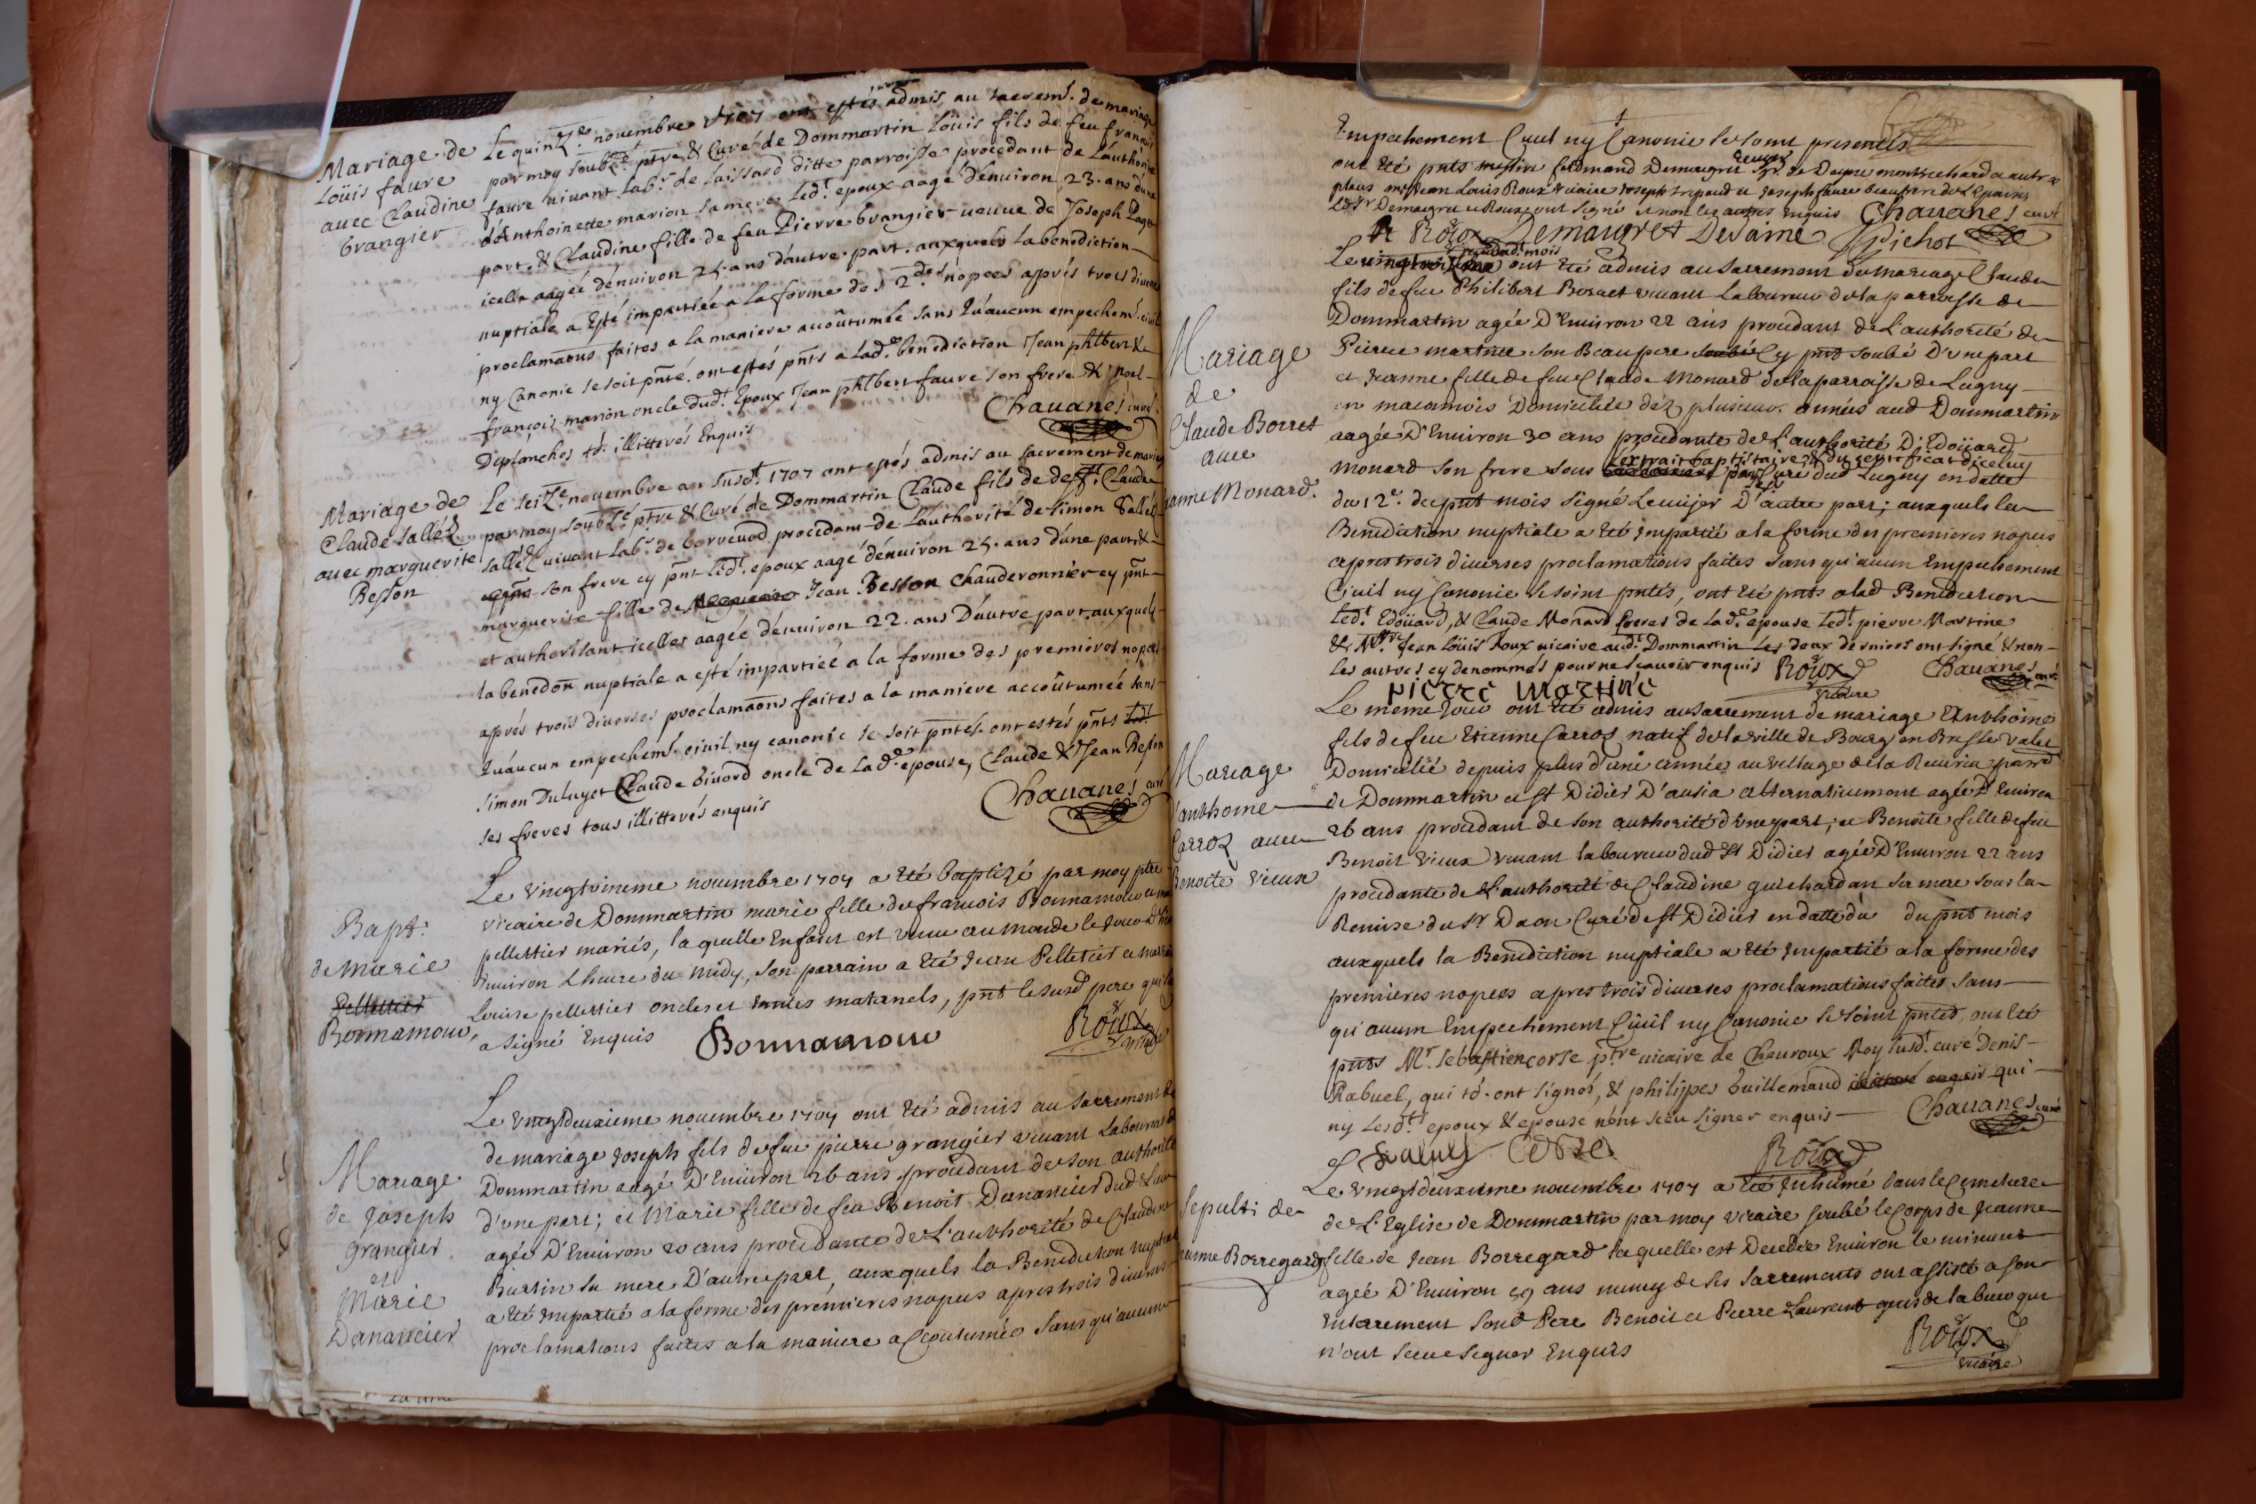 Mariage de
Loüis faure
avec Claudine
brangier
Le quinz.e novembre 1707 ont estés admis au sacrem.t de mariage
par moy soubz.é ptre & Curé de Dommartin Loüis fils de feu françois
faure vivant lab.r de saissard ditte parroisse procedant de l'authorité
d'Anthoinette marion sa mere led.t epoux aagé d'enuiron 23. ans d'une
part. & Claudine fille de feu Pierre brangier ueuue de Joseph
icelle aagée d'enuiron 25. ans d'autre part. auxquels la benediction
nuptiale a esté impartiée a la forme des 2.des nopces aprés trois diuerses
proclamãons faites a la maniere accoûtumée sans qu'aucun empechem.t ciuil
ny Canonic se soit pñté. ont estés pñts a lad.e benediction Jean philbert &
françois marion oncle dud.t Epoux Jean philbert faure son frere &
Deplanches tõ. illitterés Enquis
Chauanes curé
Mariage de
Claude sallez
auec marguerite
Besson
Le seiz.e nouembre an susd.t 1707 ont estés admis au sacrement de mariage
par moy soubz.é ptre & Curé de Dommartin Claude fils de deff.t Claude
sallez uiuant lab.r de Corveuod procedant de l'authorité de simon sallez
son frere cy pñt led.t epoux aagé d'enuiron 25. ans d'une part &
marguerite fille de Jean Besson chauderonnier cy pñt
et authorisant icelle aagée d'enuiron 22. ans D'autre part. auxquels
la benedõn nuptiale a esté impartiée a la forme des premieres nopces
aprés trois diuerses proclamãons faites a la maniere accoûtumée sans
qu'aucun empechem.t ciuil ny canonic se soit pñtés. ont estés pñts led.t
simon Duluyer Claude biuord oncle de lad.e epouse, Claude & Jean Besson
ses freres tous illitterés enquis
Chauanes curé
Bapt:
de Marie
Pelletier
Bonnamour,
Le vingtvnieme nouembre 1707 a eté baptizé par moy ptre
vicaire de Dommartin marie fille de francois Bonnamour et
pellettier mariés, la quelle Enfant est venue au monde le jour
Enuiron l'heure du midy, son parrain a eté Jean Pelletier et marraine
Louise pellettier oncle et tante maternels, pñt le susd pere qui
a signé Enquis
Bonnamour
Roüx
vicaire
Mariage
de Joseph
grangier
et
Marie
Dananciér
Le vingtdeuxieme nouembre 1707 ont eté admis au sacrement de
de mariage Joseph fils de feu pierre grangier viuant laboureur
Dommartin aagé D'Enuiron 26 ans procedant de son authorité
d'vne part; et Marie fille de feu Benoit Dananciér dud
agée D'Enuiron 20 ans procedante de L'authorité de Claudine
Burtin sa mere D'autre part, auxquels la Benediction nuptiale
a eté impartié a la forme des premieres nopces apres trois diuerses
proclamations faites a la maniere accoutumée sans qu'aucun
Empechement Ciuil ny Canonic se soint presentés
ont eté pnts messire ferdinand Demaigret de Desaine montrechard et autre
places mre Jean Louis Roux vicaire Joseph trepaud et Joseph faure beaufrere de L'epouse
Les Sr Demaigret et Roux ont signé et non les autres Enquis Chauanes curé
Roüx Demaigret Desaine Pichot
Le vingtdeux dud.t mois
ont eté admis au sacrement de mariage Claude
fils de feu Philibert Borret viuant Laboureur de la parroisse de
Dommartin agée D'Enuiron 22 ans procedant de L'authorité de
Pierre martine son Beaupere Cy pñt soubé D'vne part
et Jeanne fille de feu Claude Monard de la parroisse de Lugny
en maconnois Domiciliée déz plusieur. années aud Dommartin
aagée D'Enuiron 30 ans procedante de L'authorité D'Edoüard
monard son frere sous l'extrait baptistaire, & du certificat d'iceluy
par Curé dud Lugny en datte
du 12e. du pñt mois signé Leuijer D'autre part; auxquels la
Benediction nuptiale a eté impartié a la forme des premieres nopces
apres trois diuerses proclamations faites sans qu'aucun Empechement
Ciuil ny Canonic se soint pntés, ont eté pnts a lad Benediction
led.t Edoüard, & Claude Monard freres de lad.e epouse led.t pierre Martine
& M.re Jean Loüis Roux uicaire aud.t Dommartin Les deux derniers ont signé & non
les autres cy denommés pour ne scauoir enquis Roüx Chauanes curé
vicaire
PIERRE MARTINE
Mariage
de
Claude Borret
auec
Jeanne Monard.
Le meme jour ont eté admis au sacrement de mariage Anthoine
fils de feu Etienne Carroz natif de la ville de Bourg en Bresse valet
Domicilié depuis plus d'une année au village de la Reuiria parr.e
de Dommartin et St Didier D'ausia alternatiuement agée D'Enuiron
26 ans procedant de son authorité d'vne part; et Benoite fille de feu
Benoit vieux viuant laboureur dud St Didier agée D'Enuiron 22 ans
procedante de L'authorité de Claudine guichardan sa mere sous la
Remise du Sr Daon Curé de St Didier en datte du du pñt mois
auxquels la Benediction nuptiale a eté impartié a la forme des
premieres nopces apres trois diuerses proclamations faites sans
qu'aucun Empechement Ciuil ny Canonic se soint pntés, ont eté
pnts M.r sebastien corse p.tre uicaire de Chauroux Moy susd.t curé denis
Rabuel, qui tõ. ont signés, & philippes buillemand qui
ny lesd.ts epoux & epouse n'ont sceu signer enquis Chauanes curé
Rabuel Corse Roüx
Mariage
d'anthoine
Carroz auec
Benoite vieux
Sepult: de
Jeanne Borregard
Le vingtdeuxieme nouembre 1707 a eté inhumé dans le Cemetiere
de L'Eglise de Dommartin par moy vicaire soubé le Corps de Jeanne
fille de Jean Borregard laquelle est Decedée Enuiron le minuit
agée D'Enuiron 59 ans muny de ses sacrements ont assisté a son
Enterrement sond Pere Benoit et Pierre Laurent gens de labeur qui
n'ont sceu signer Enquis
Roüx
vicaire